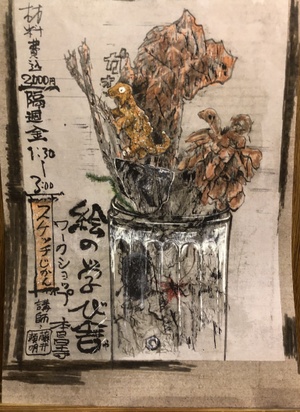 絵の学び舎
ワークショップ
スケッチじかん
講師
隔週金
1:30〜3:00
材料費込
2,000円